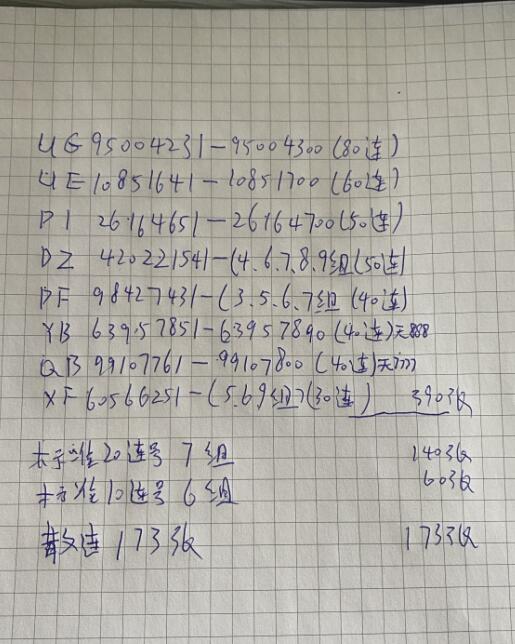 UG 95004231—95004300(80连)
UE 10851641—10851700(60连)
PI 26164651—26164700(50连)
DZ 420221541—(4.6.7.8.9组(50连)
DF 98427431—(3.5.6.7组(40连)
YB 63957851—63957890(40连)无888
QB 99107761—99107800(40连)无777
XF 60566251—(5.6.9组)(30连) 390张
标准20连号 7组 140张
标准10连号 6组 60张
散连173张 173张